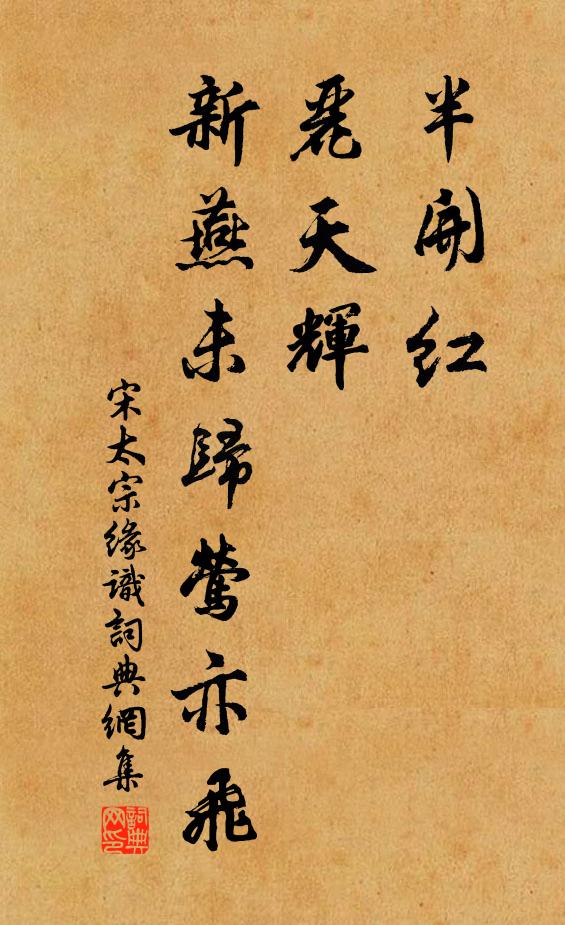 半開紅
麗天輝
新燕未歸鶯亦飛
宋太宗緣識詞典網集
詞典
网印